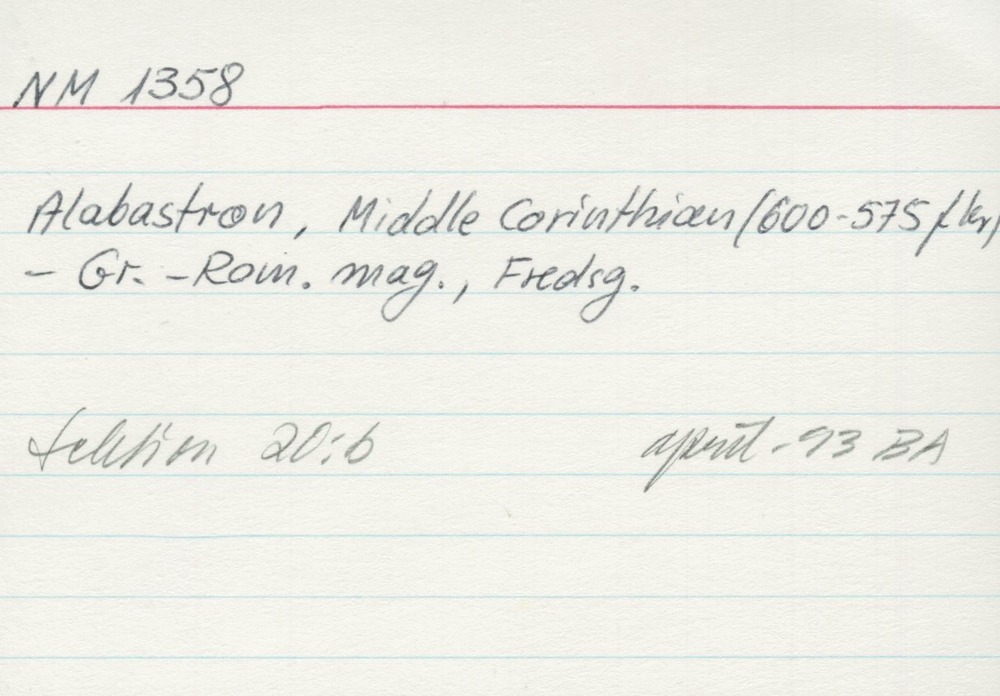 NM 1358
Alabastron, Middle Corinthian (600-575 f kr)
- Gr. - Rom. mag., Fredsg.
Sektion 20:6 april -93 BA